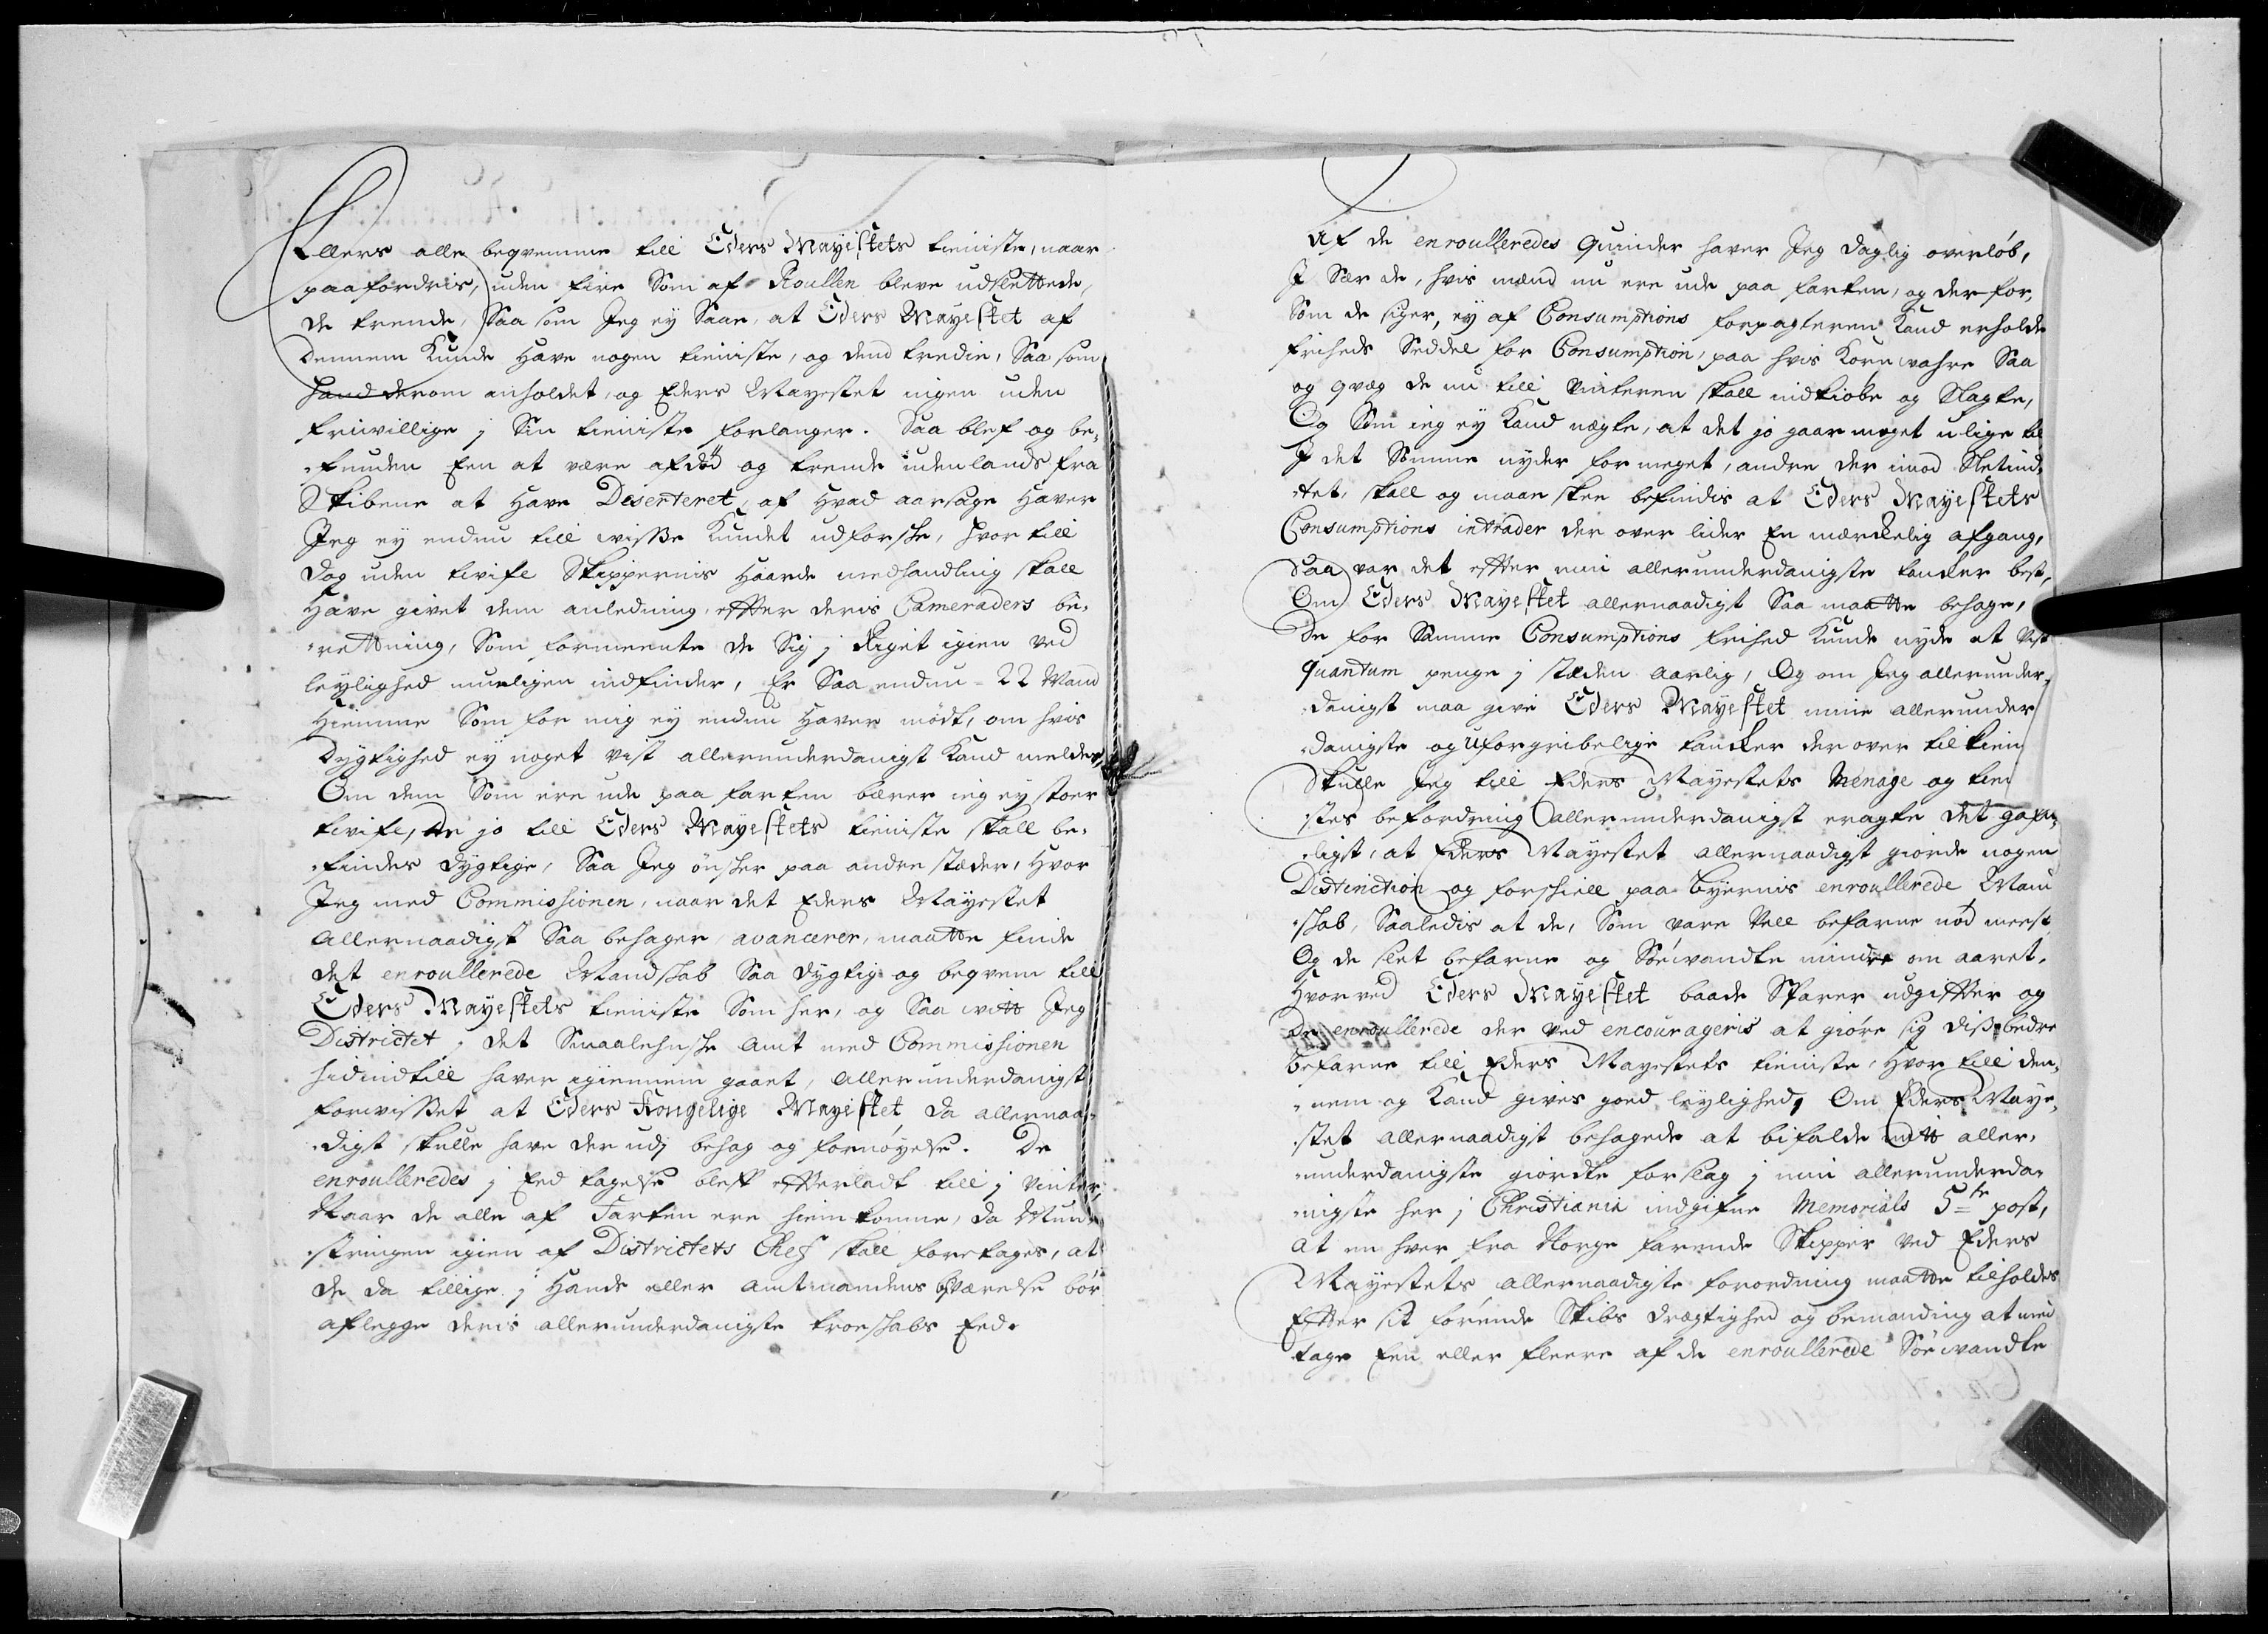 Ellers alle beqvemme till Eders Mayestets tieniste, naar
paafordris, uden fire Som af Roullen bleve udslettede,
de trende, Saa som Jeg ey Saae, at Eders Mayestet af
dennem Kunde Have nogen tieniste, og dend tredie, Saa som
hand derom anholdet, og Eders Mayestet ingen uden
friivillige j Sin tieniste forlanger. Saa blef og be¸
¸funden Een at være afdöd og trende udenlands fra
Skibene at Have Deserteret, af Hvad aarsage Haver
Jeg ey endnu till wisse Kundet udforske, hvor till
dog uden twifl Skippernis Haarde medhandling skall
Have givet dem anledning, effter deris Cameraders be¸
¸rettning, Som formeente de Sig j Riget igien ved
leylighed nueligen indfinder, Er Saa endnu 22 Mand
Hiemme Som for mig ey endnu Haver mödt, om hvis
dygtighed ey noget vist allerunderdanigst Kand meldes,
Om dem Som ere ude paa farten bærer ieg ey stoer
twifl, de jo till Eders Mayestets tieniste skall be¸
¸findes dygtige, Saa Jeg ønsker paa andre stæder, Hvor
Jeg med Commissionen, naar det Eders Mayestet
Allernaadigst Saa behager, avancerer, maatte finde
det enroullerede Mandskab Saa dygtig og beqvem till
Eders Mayestets tieniste Som her, og Saa witt Jeg
Districtet j det Smaalehnske Amt med Commissionen
hidindtill haver igiennem gaaet, Allerunderdanigst
forvisset at Eders Kongelige Mayestet da allernaa¸
¸digst skulle have der udj behag og fornöyelse. De
enroulleredes j Eed tagelse bleff effterladt till j vinter,
Naar de alle af Farten ere hiemkomne, da Mun¸
¸stringen igien af Districtets Chef skall foretages, at
de da tillige j Hands eller Amtmandens ofværelse bör
aflegge deris allerunderdanigste troeskabs Eed.

Af de enroulleredes Qvinder haver Jeg daglig overlöb,
J Sær de, hvis mænd nu ere ude paa farten, og der for,
Som de siger, ey af Consumptions forpagteren Kand erholde
friheds Seddel for Consumption, paa hvis Korn wahre Saa
og qvæg de nu till vinteren skall indkiöbe og Slagte,
Og Som ieg ey Kand nægte, at det jo gaar meget ulige til
J det Somme nyder for meget, andre der imod Slet ind¸
¸tet, skall og maaskee befindis at Eders Mayestets
Consumptions intrader der over lider En mærckelig afgang,
Saa var det effter min allerunderdanigste tancker best,
Om Eders Mayestet allernaadigst Saa maatte behage,
De for Samme Consumptions frihed Kunde nyde et vist
quantum penge j stæden Aarlig, Og om Jeg allerunder¸
¸danigst maa give Eders Mayestet mine allerunder
¸danigste og uforgribelige tancker der over tilkien
Skulle Jeg till Eders Mayestets Menage og tien
¸stes befordring allerunderdanigst eragte det gafn¸
¸ligst, at Eders Mayestet allernaadigst giorde nogen
Distinction og forskiell paa byernis enroullerede Mand
¸skab, Saaledis at de, Som vare Vell befarne nöd meest
Og de slet befarne og Söewandte mindre om aaret.
Hvorved Eders Mayestet baade Sparer udgiffter og
De enroullerede der ved encourageris at giöre sig diss bedre
befarne till Eders Mayestets tieniste, Hvor till den¸
¸nem og Kand gives goed leylighed, Om Eders Maye¸
¸stet allernaadigst behagede at bifalde mitt aller¸
¸underdanigste giordte forslag j min allerunderda¸
¸nigste her j Christiania indgifne Memorials 5te post,
at en hver fra Norge farende Skipper ved Eders
Mayestets allernaadigste forordning maatte tilholdes
Effter sit förende Skibs drægtighed og bemanding at med
tage Een eller fleere af de enroullerede Söewandte